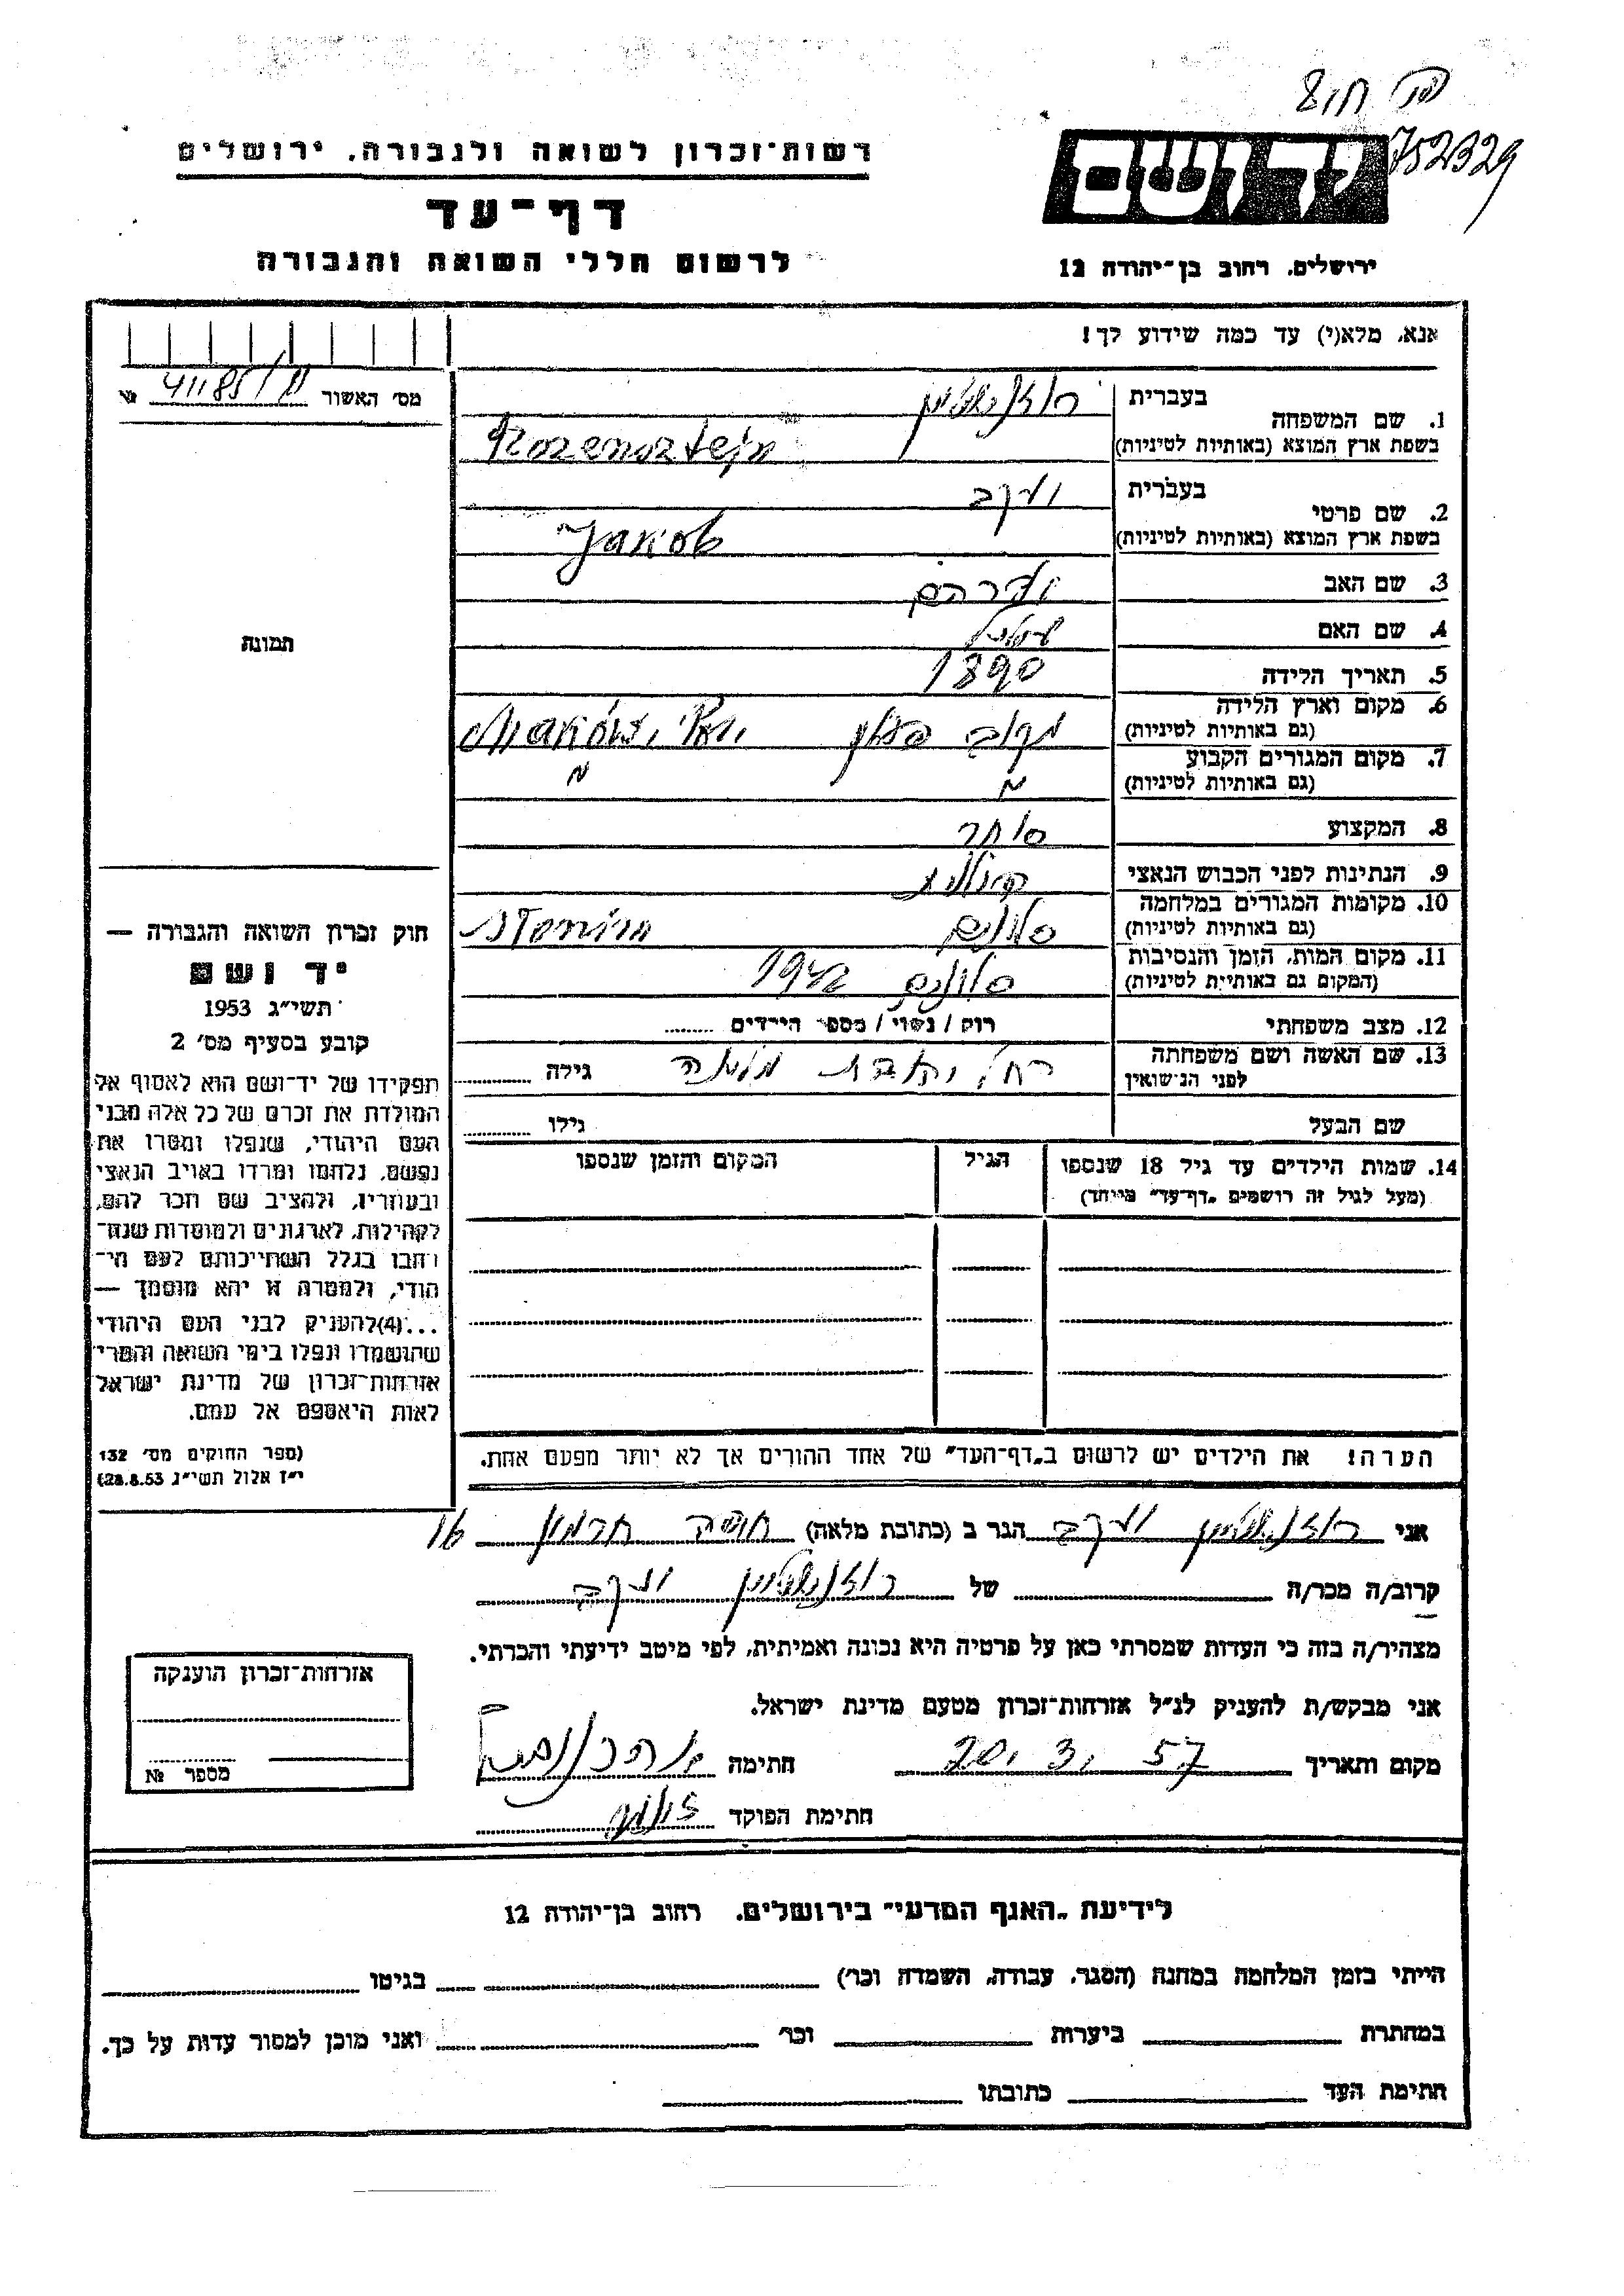 752329
רשות־זכרון לשואה ולגבורה, ירושלים
יד ושם
דף־עד
לרשום חללי השואה והגבורה
ירושלים, רחוב בן־יהודה 12
אנא, מלא(י) עד כמה שידוע לך!
מס' האשור 41185/
1. שם המשפחה בעברית רוזנשטיין
בשפת ארץ המוצא (באותיות לטיניות) Rozensztejn
2. שם פרטי בעברית יעקב
בשפת ארץ המוצא (באותיות לטיניות) Jakob
3. שם האב
4. שם האם
5. תאריך הלידה 1890
6. מקום וארץ הלידה
(גם באותיות לטיניות) מקוב פולין
7. מקום המגורים הקבוע
(גם באותיות לטיניות) " "
8. המקצוע סוחר
9. הנתינות לפני הכבוש הנאצי פולנית
10. מקומות המגורים במלחמה
(גם באותיות לטיניות) סלונים Slonim
11. מקום המות, הזמן והנסיבות
(המקום גם באותיות לטיניות) סלונים 1942
12. מצב משפחתי רווק / נשוי / מספר הילדים
13. שם האשה ושם משפחתה
לפני הנישואין רחל לבית גילה
שם הבעל גילו
14. שמות הילדים עד גיל 18 שנספו הגיל המקום והזמן שנספו
(מעל לגיל זה רושמים „דף־עד" מיוחד)
תמונה
חוק זכרון השואה והגבורה —
יד ושם
תשי"ג 1953
קובע בסעיף מס' 2
תפקידו של יד־ושם הוא לאסוף אל
המולדת את זכרם של כל אלה מבני
העם היהודי, שנפלו ומסרו את
נפשם, נלחמו ומרדו באויב הנאצי
ובעוזריו, ולהציב שם וזכר להם,
לקהילות, לארגונים ולמוסדות שנח־
רבו בגלל השתייכותם לעם הי־
הודי, ולמטרה זו יהא מוסמך —
...(4) להעניק לבני העם היהודי
שהושמדו ונפלו בימי השואה והמרי
אזרחות־זכרון של מדינת ישראל
לאות היאספם אל עמם.
(ספר החוקים מס' 132
י"ז אלול תשי"ג 28.8.53)
הערה! את הילדים יש לרשום ב„דף־העד" של אחד ההורים אך לא יותר מפעם אחת.
אני רוזנשטיין יעקב הגר ב (כתובת מלאה) חיפה חרמון 16
קרוב/ה מכר/ה של רוזנשטיין יעקב
מצהיר/ה בזה כי העדות שמסרתי כאן על פרטיה היא נכונה ואמיתית, לפי מיטב ידיעתי והכרתי.
אני מבקש/ת להעניק לנ"ל אזרחות־זכרון מטעם מדינת ישראל.
מקום ותאריך 20.3.57 חתימה
חתימת הפוקד
אזרחות־זכרון הוענקה
מספר №
לידיעת „האגף המדעי" בירושלים, רחוב בן־יהודה 12
הייתי בזמן המלחמה במחנה (הסגר, עבודה, השמדה וכו') בגיטו
במחתרת ביערות וכו' ואני מוכן למסור עדות על כך.
חתימת העד כתובתו